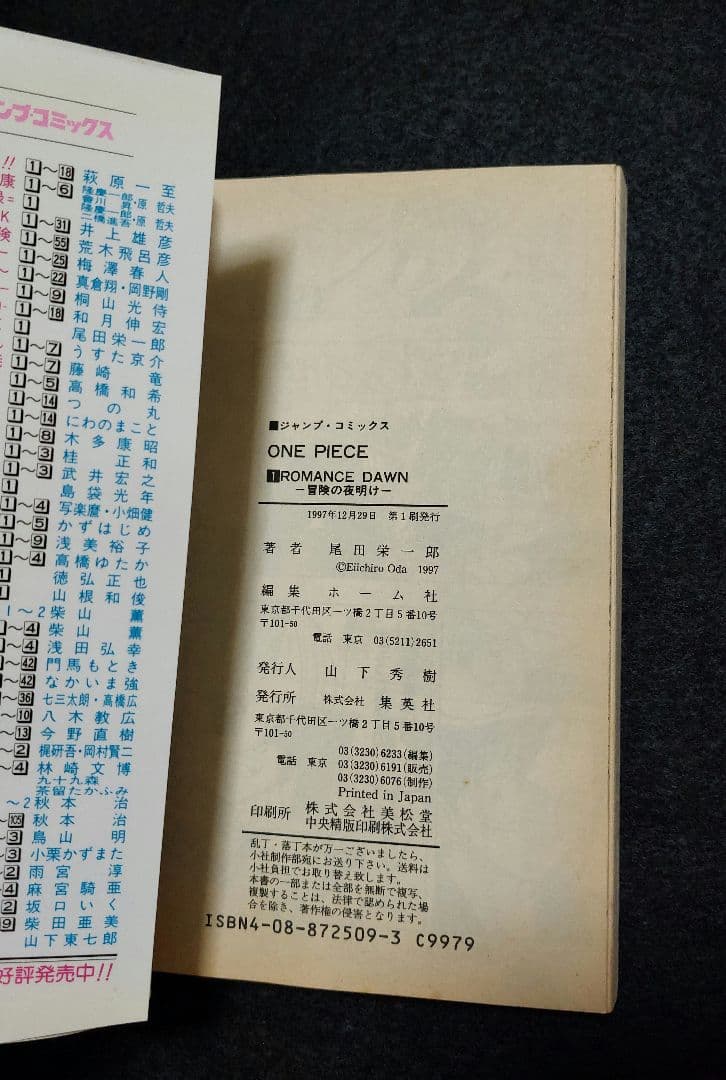 ンプ・コミックス
!!
1〜18 萩原一至
康 1〜6 隆慶一郎・原哲夫
會川昇
1 隆慶一郎・原哲夫
二橋進吾
K 1〜31 井上雄彦
険 1〜55 荒木飛呂彦
1〜25 梅澤春人
1〜22 真倉翔・岡野剛
1〜9 桐山光侍
1〜18 和月伸宏
1 尾田栄一郎
1〜7 うすた京介
1〜7 藤崎竜
1〜5 高橋和希
1〜14 つの丸
1〜14 にわのまこと
1〜8 木多康昭
1〜3 桂正和
1〜3 武井宏之
1 島袋光年
1〜4 写楽麿・小畑健
1〜5 かずはじめ
〜9 浅美裕子
〜4 高橋ゆたか
徳弘正也
山根和俊
1〜2 柴山薫
〜4 柴山薫
〜4 浅田弘幸
〜42 門馬もとき
〜42 なかいま強
〜36 七三太朗・高橋広
〜10 八木教広
〜13 今野直樹
〜2 梶研吾・岡村賢二
〜4 林崎文博
九十九森
茶留たかふみ
〜2 秋本治
〜105 秋本治
〜3 鳥山明
〜3 小栗かずまた
〜2 雨宮淳
〜4 麻宮騎亜
2 坂口いく
9 柴田亜美
山下東七郎
好評発売中!!
■ジャンプ・コミックス
ONE PIECE
1 ROMANCE DAWN
—冒険の夜明け—
1997年12月29日 第1刷発行
著者 尾田栄一郎
©Eiichiro Oda 1997
編集 ホーム社
東京都千代田区一ツ橋2丁目5番10号
〒101-50
電話 東京 03(5211)2651
発行人 山下秀樹
発行所 株式会社 集英社
東京都千代田区一ツ橋2丁目5番10号
〒101-50
03(3230)6233(編集)
電話 東京 03(3230)6191(販売)
03(3230)6076(制作)
Printed in Japan
印刷所 株式会社美松堂
中央精版印刷株式会社
乱丁・落丁本が万一ございましたら、
小社制作部宛にお送り下さい。送料は
小社負担でお取り替え致します。
本書の一部または全部を無断で複写、
複製することは、法律で認められた場
合を除き、著作権の侵害となります。
ISBN4-08-872509-3 C9979